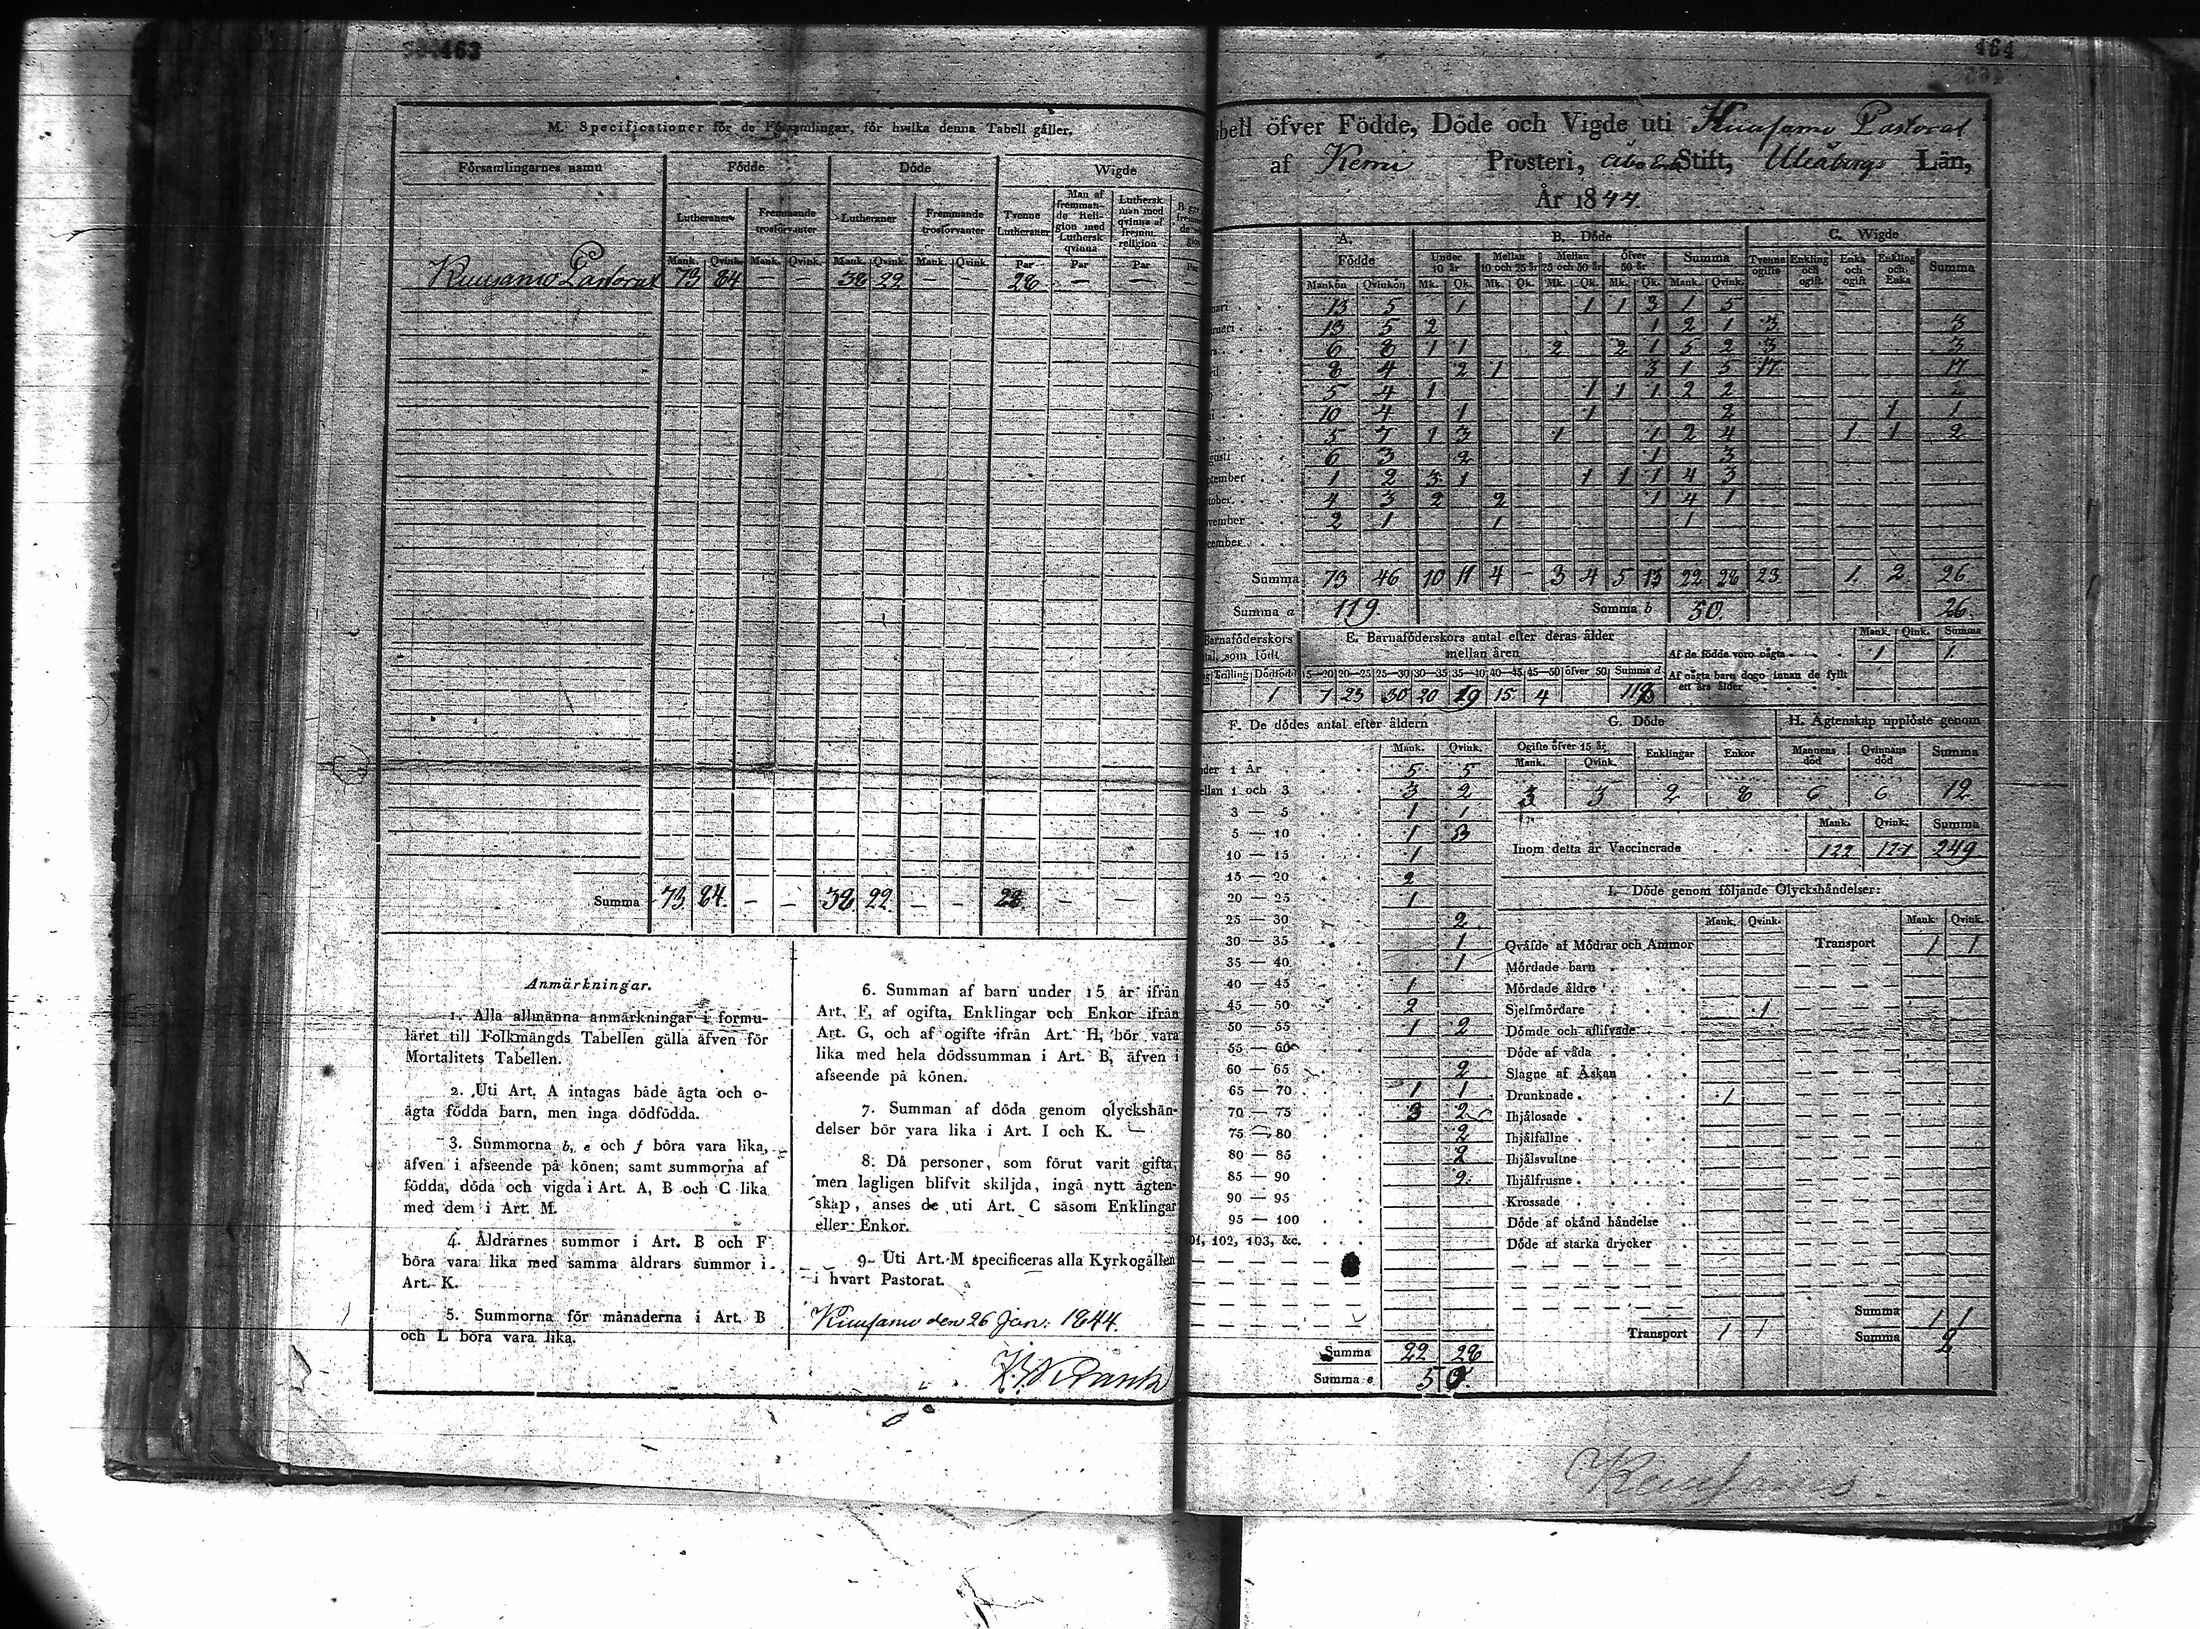 463
M. Specificationer för de Församlingar, för hvilka denna Tabell gäller.
Församlingarnes namn Födde Döde Wigde
Lutheraner Fremmande trosförvanter Lutheraner Fremmande trosförvanter Tvenne Lutheraner Man af fremmande Religion med Luthersk qvinna Luthersk man med qvinna af fremm. religion
Mank. Qvink. Mank. Qvink. Mank. Qvink. Mank. Qvink. Par Par Par Par
Kuusamo Pastorat 73 84 — — 38 22 — — 28 — — —
Summa 73. 84. — — 38. 22. — — 28. — —
Anmärkningar.
1. Alla allmänna anmärkningar i formu-
läret till Folkmängds Tabellen gälla äfven för
Mortalitets Tabellen.
2. Uti Art. A intagas både ägta och o-
ägta födda barn, men inga dödfödda.
3. Summorna b, e och f böra vara lika,
äfven i afseende på könen; samt summorna af
födda, döda och vigda i Art. A, B och C lika
med dem i Art. M.
4. Åldrarnes summor i Art. B och F
böra vara lika med samma åldrars summor i
Art. K.
5. Summorna för månaderna i Art. B
och L böra vara lika.
6. Summan af barn under 15 år ifrån
Art. F, af ogifta, Enklingar och Enkor ifrån
Art. G, och af ogifte ifrån Art. H, bör vara
lika med hela dödssumman i Art. B, äfven i
afseende på könen.
7. Summan af döda genom olyckshän-
delser bör vara lika i Art. I och K.
8. Då personer, som förut varit gifta,
men lagligen blifvit skiljda, ingå nytt ägten-
skap, anses de uti Art. C såsom Enklingar
eller Enkor.
9. Uti Art. M specificeras alla Kyrkogällen
i hvart Pastorat.
Kuusamo den 26 Jan: 1844.
464
bell öfver Födde, Döde och Vigde uti Kuusamo Pastorat
af Kemi Prosteri, Åbo Stift, Uleåborgs Län,
År 1844.
A. Födde B. Döde C. Wigde
Under 10 år Mellan 10 och 25 år Mellan 25 och 50 år Öfver 50 år Summa Tvenne ogifte Enkling och ogift Enka och ogift Enkling och Enka Summa
Mankön Qvinkön Mk. Qk. Mk. Qk. Mk. Qk. Mk. Qk. Mank. Qvink.
nuari 13 5 1 1 1 3 1 5
ruari 13 5 2 1 2 1 3 3
6 8 1 1 2 2 1 5 2 3 3
ril 8 4 2 1 3 1 5 17 17
5 4 1 1 1 1 2 2
10 4 1 1 2 1 1
5 7 1 3 1 1 2 4 1 1 2
gusti 6 3 2 1 3
ptember 1 2 3 1 1 1 1 4 3
tober 4 3 2 2 1 4 1
vember 2 1 1 1
cember
Summa 73 46 10 11 4 — 3 4 5 13 22 28 23. 1. 2. 26
Summa a 119. Summa b 50. 26.
Barnaföderskors
tal, som födt
Trilling Dödfödt
1
E. Barnaföderskors antal efter deras ålder
mellan åren
15—20 20—25 25—30 30—35 35—40 40—45 45—50 öfver 50 Summa d
7 23 30 20 19 15 4 118
Mank. Qink. Summa
Af de födde voro oägta 1 1.
Af oägta barn dogo innan de fyllt
ett års ålder
F. De dödes antal efter åldern
Mank. Qvink.
nder 1 År 5 5
ellan 1 och 3 3 2
3 — 5 1 1
5 — 10 1 3
10 — 15 1
15 — 20 2
20 — 25 1
25 — 30 2
30 — 35 1
35 — 40 1
40 — 45 1
45 — 50 2
50 — 55 1 2
55 — 60
60 — 65 2
65 — 70 1 1
70 — 75 3 2
75 — 80 2
80 — 85 2
85 — 90 2
90 — 95
95 — 100
01, 102, 103, &c.
Summa 22 28
Summa e 50.
G. Döde
Ogifte öfver 15 år Enklingar Enkor
Mank. Qvink.
3 3 2 8
H. Ägtenskap upplöste genom
Mannens död Qvinnans död Summa
6 6 12
Mank. Qvink. Summa
Inom detta år Vaccinerade 122 127 249.
I. Döde genom följande Olyckshändelser:
Mank. Qvink. Mank. Qvink.
Qväfde af Mödrar och Ammor Transport 1 1
Mördade barn
Mördade äldre
Sjelfmördare 1
Dömde och aflifvade
Döde af våda
Slagne af Åskan
Drunknade 1
Ihjälosade
Ihjälfallne
Ihjälsvultne
Ihjälfrusne
Krossade
Döde af okänd händelse
Döde af starka drycker
Summa 1 1
Transport 1 1 Summa 2
Kuusamo